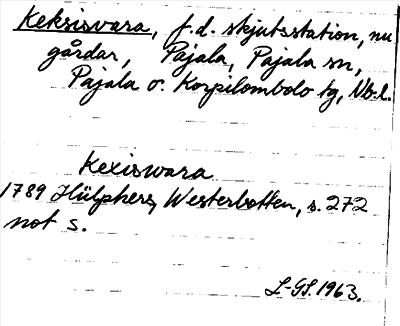 Keksisvara, f.d. skjutsstation, nu
gårdar, Pajala, Pajala sn,
Pajala o. Korpilombolo tg, Nb.l.
Kexiswara
1789 Hülphers, Westerbotten, s. 272
not s.
L-GS. 1963.